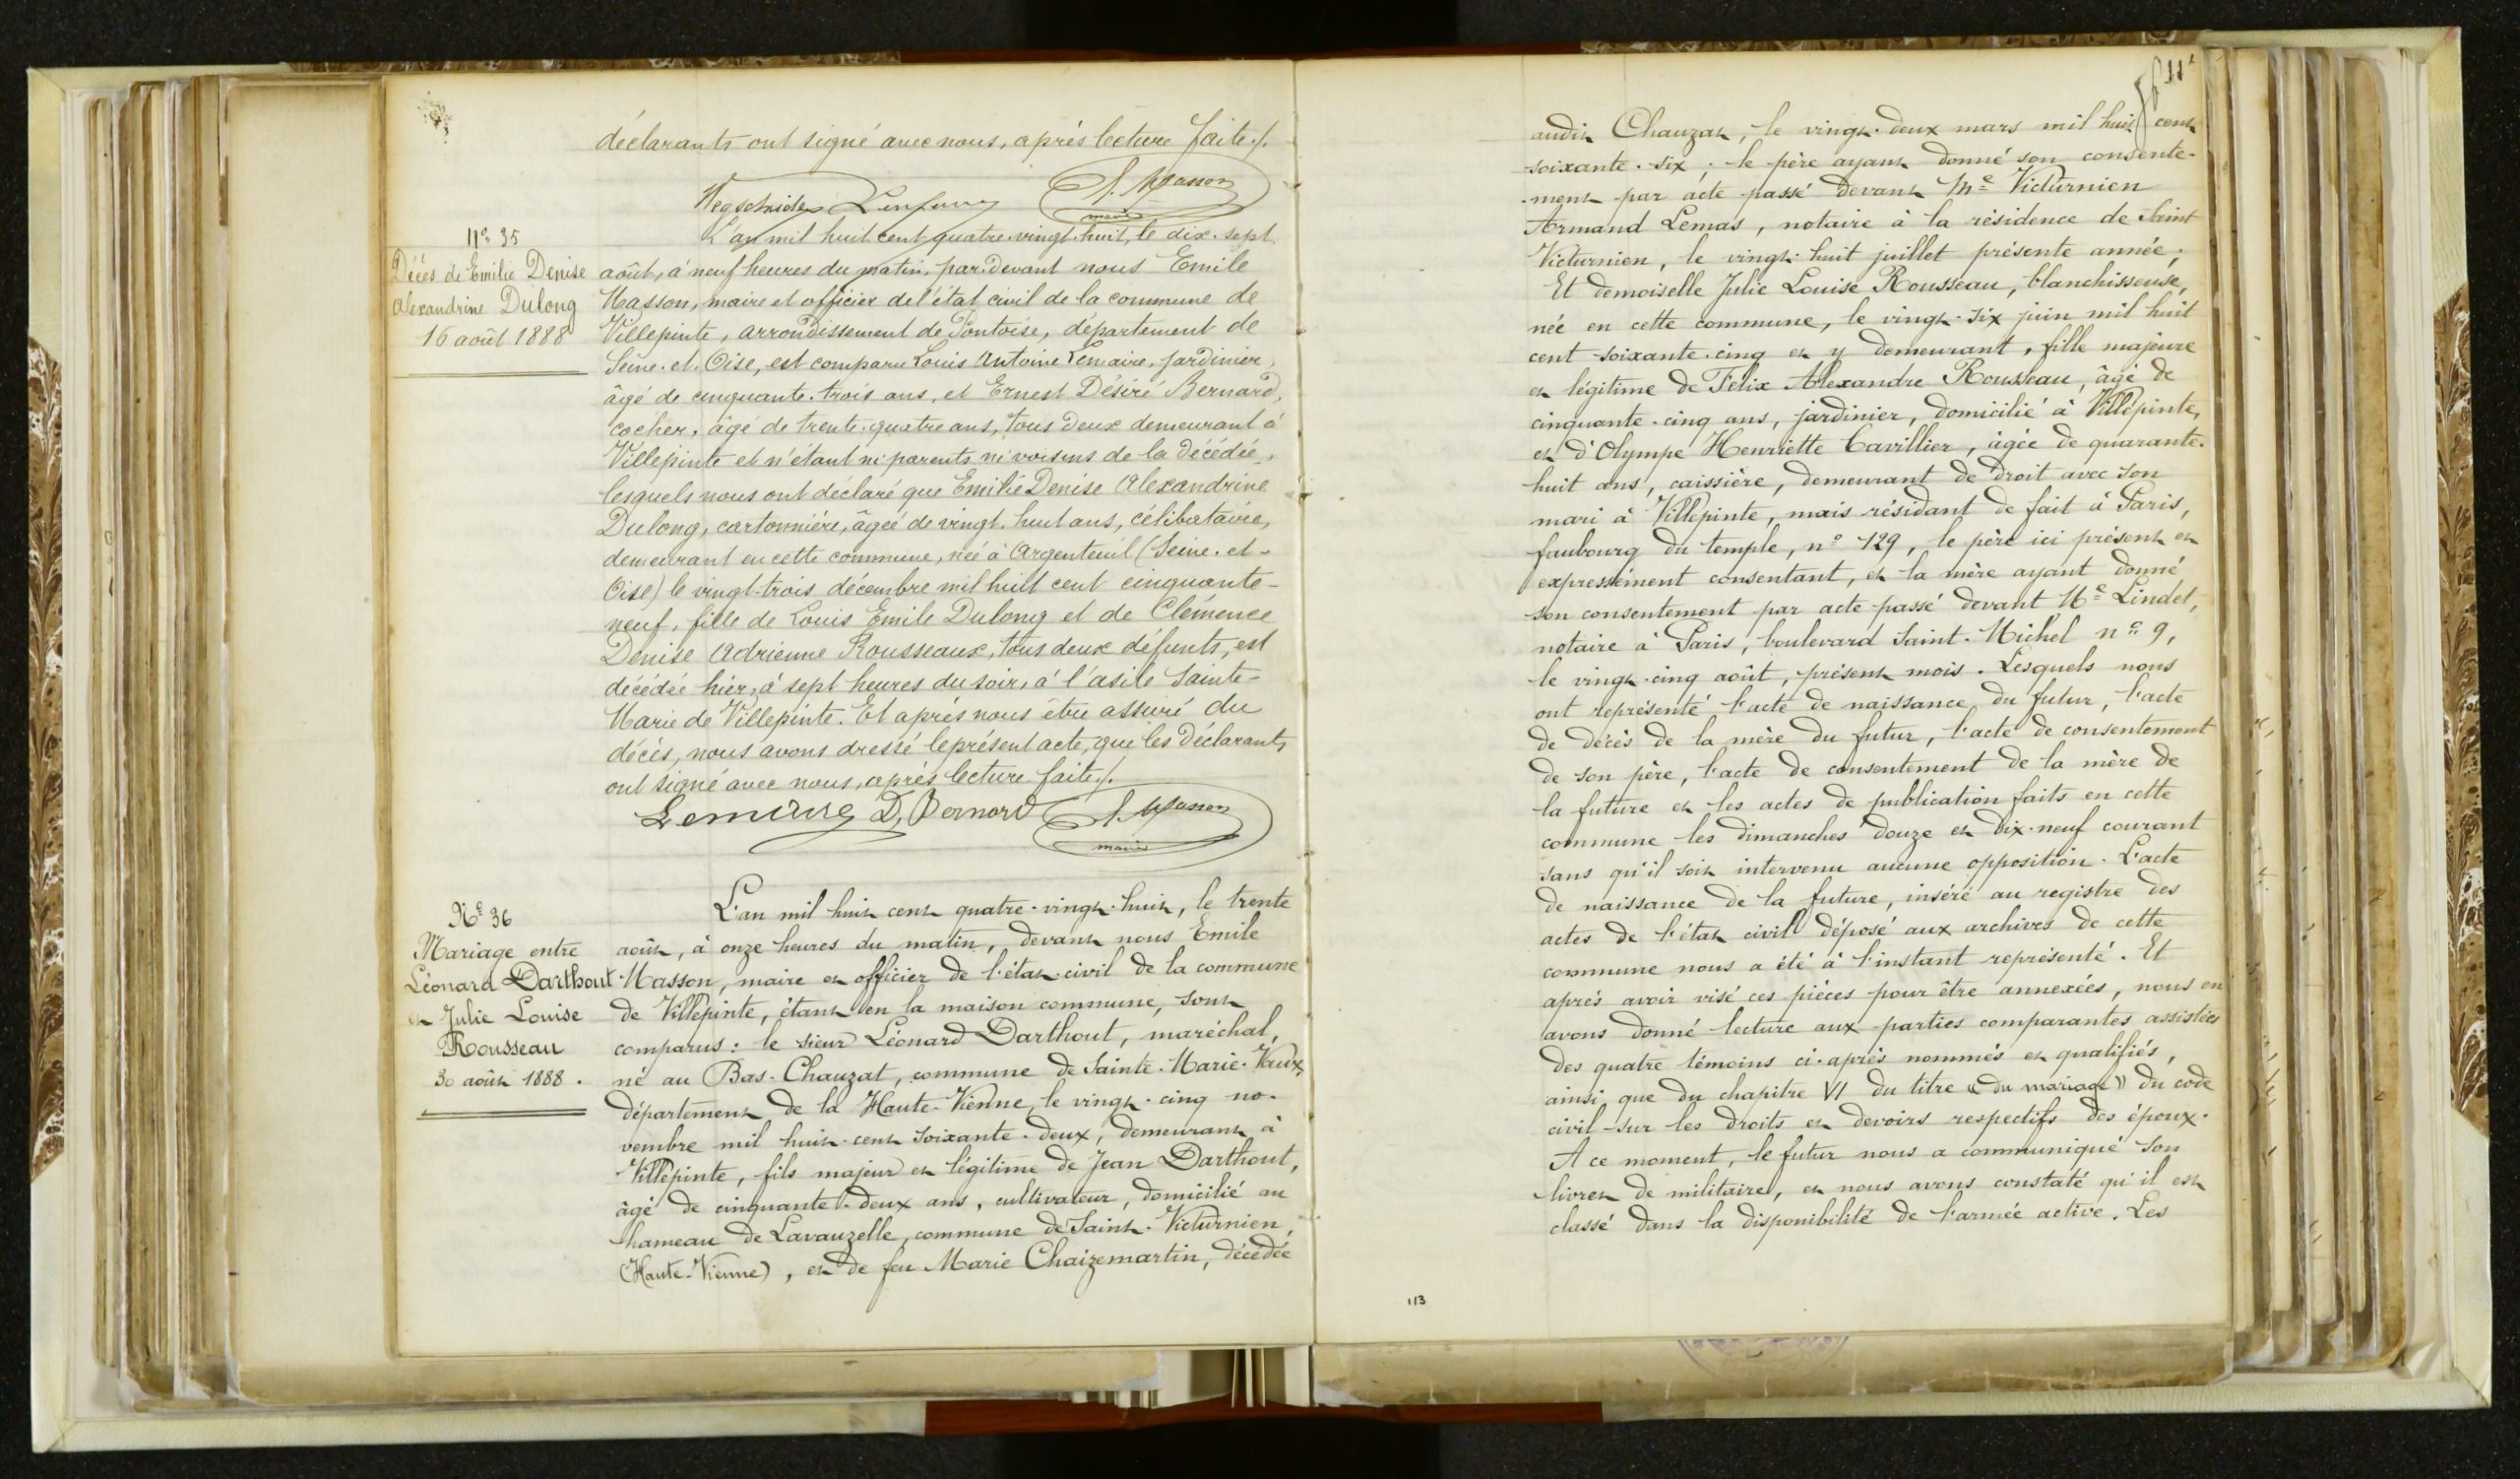 déclarants ont signé avec nous, après lecture faite./.
Wegscheider Lenfant E. Masson
maire
N° 35
Décès de Emilie Denise
Alexandrine Dulong
16 août 1888
L'an mil huit cent quatre-vingt-huit, le dix-sept
août, à neuf heures du matin, par devant nous Emile
Masson, maire et officier de l'état civil de la commune de
Villepinte, arrondissement de Pontoise, département de
Seine-et-Oise, est comparu Louis Antoine Lemaire, jardinier,
âgé de cinquante-trois ans, et Ernest Désiré Bernard,
cocher, âgé de trente-quatre ans, tous deux demeurant à
Villepinte et n'étant ni parents ni voisins de la décédée,
lesquels nous ont déclaré que Emilie Denise Alexandrine
Dulong, cartonnière, âgée de vingt-huit ans, célibataire,
demeurant en cette commune, née à Argenteuil (Seine-et-
Oise) le vingt-trois décembre mil huit cent cinquante-
neuf, fille de Louis Emile Dulong et de Clémence
Denise Adrienne Rousseaux, tous deux défunts, est
décédée hier, à sept heures du soir, à l'asile Sainte-
Marie de Villepinte. Et après nous être assuré du
décès, nous avons dressé le présent acte, que les déclarants
ont signé avec nous, après lecture faite./.
Lemaire D. Bernard E. Masson
maire
N° 36
Mariage entre
Léonard Darthout
et Julie Louise
Rousseau
30 août 1888.
L'an mil huit cent quatre-vingt-huit, le trente
août, à onze heures du matin, devant nous Emile
Masson, maire et officier de l'état-civil de la commune
de Villepinte, étant en la maison commune, sont
comparus : le sieur Léonard Darthout, maréchal,
né au Bas-Chauzat, commune de Sainte-Marie-Vaux,
département de la Haute-Vienne, le vingt-cinq no-
vembre mil huit-cent soixante-deux, demeurant à
Villepinte, fils majeur et légitime de Jean Darthout,
âgé de cinquante-deux ans, cultivateur, domicilié au
hameau de Lavauzelle, commune de Saint-Victurnien,
(Haute-Vienne), et de feu Marie Chaizemartin, décédée
11
audit Chauzat, le vingt-deux mars mil huit cent
soixante-six ; le père ayant donné son consente-
-ment par acte passé devant Me Victurnien
Armand Lemas, notaire à la résidence de Saint
Victurnien, le vingt-huit juillet présente année ;
Et demoiselle Julie Louise Rousseau, blanchisseuse,
née en cette commune, le vingt-six juin mil huit
cent soixante-cinq et y demeurant, fille majeure
et légitime de Félix Alexandre Rousseau, âgé de
cinquante-cinq ans, jardinier, domicilié à Villepinte,
et d'Olympe Henriette Cavillier, âgée de quarante-
huit ans, caissière, demeurant de droit avec son
mari à Villepinte, mais résidant de fait à Paris,
faubourg du temple, n° 129, le père ici présent et
expressément consentant, et la mère ayant donné
son consentement par acte passé devant Me Lindet,
notaire à Paris, boulevard Saint-Michel n° 9,
le vingt-cinq août, présent mois. Lesquels nous
ont représenté l'acte de naissance du futur, l'acte
de décès de la mère du futur, l'acte de consentement
de son père, l'acte de consentement de la mère de
la future et les actes de publication faits en cette
commune les dimanches douze et dix-neuf courant
sans qu'il soit intervenu aucune opposition. L'acte
de naissance de la future, inséré au registre des
actes de l'état civil déposé aux archives de cette
commune nous a été à l'instant représenté. Et
après avoir visé ces pièces pour être annexées, nous en
avons donné lecture aux parties comparantes assistées
des quatre témoins ci-après nommés et qualifiés,
ainsi que du chapitre VI du titre « du mariage » du code
civil sur les droits et devoirs respectifs des époux.
A ce moment, le futur nous a communiqué son
livret de militaire, et nous avons constaté qu'il est
classé dans la disponibilité de l'armée active. Les
113